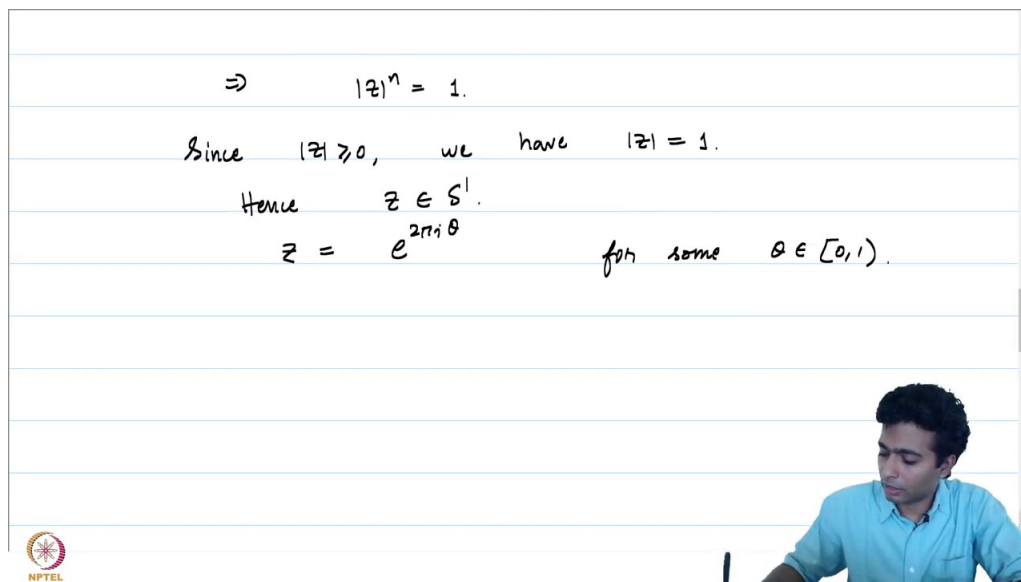 ⇒ |z|ⁿ = 1.
Since |z| ≥ 0, we have |z| = 1.
Hence z ∈ S¹.
z = e^{2πiθ} for some θ ∈ [0,1).
NPTEL